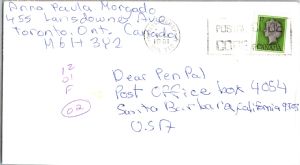 Anna Paula Morgado
455 Lansdowne Ave
Toronto. Ont. Canada
M6H 3Y2
POSTAL
CODE
CANADA
12
01
F
02
Dear Pen Pal
Post Office box 4054
Santa Barbara, California
USA